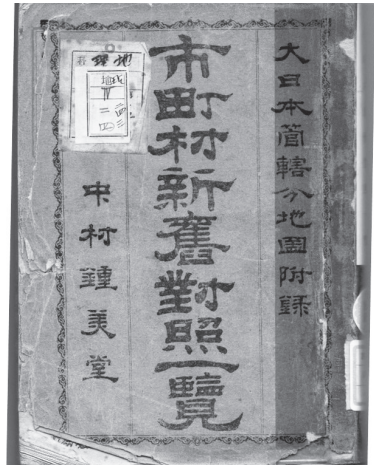 大日本管轄分地圖附錄
市町村新舊對照一覽
中村鍾美堂